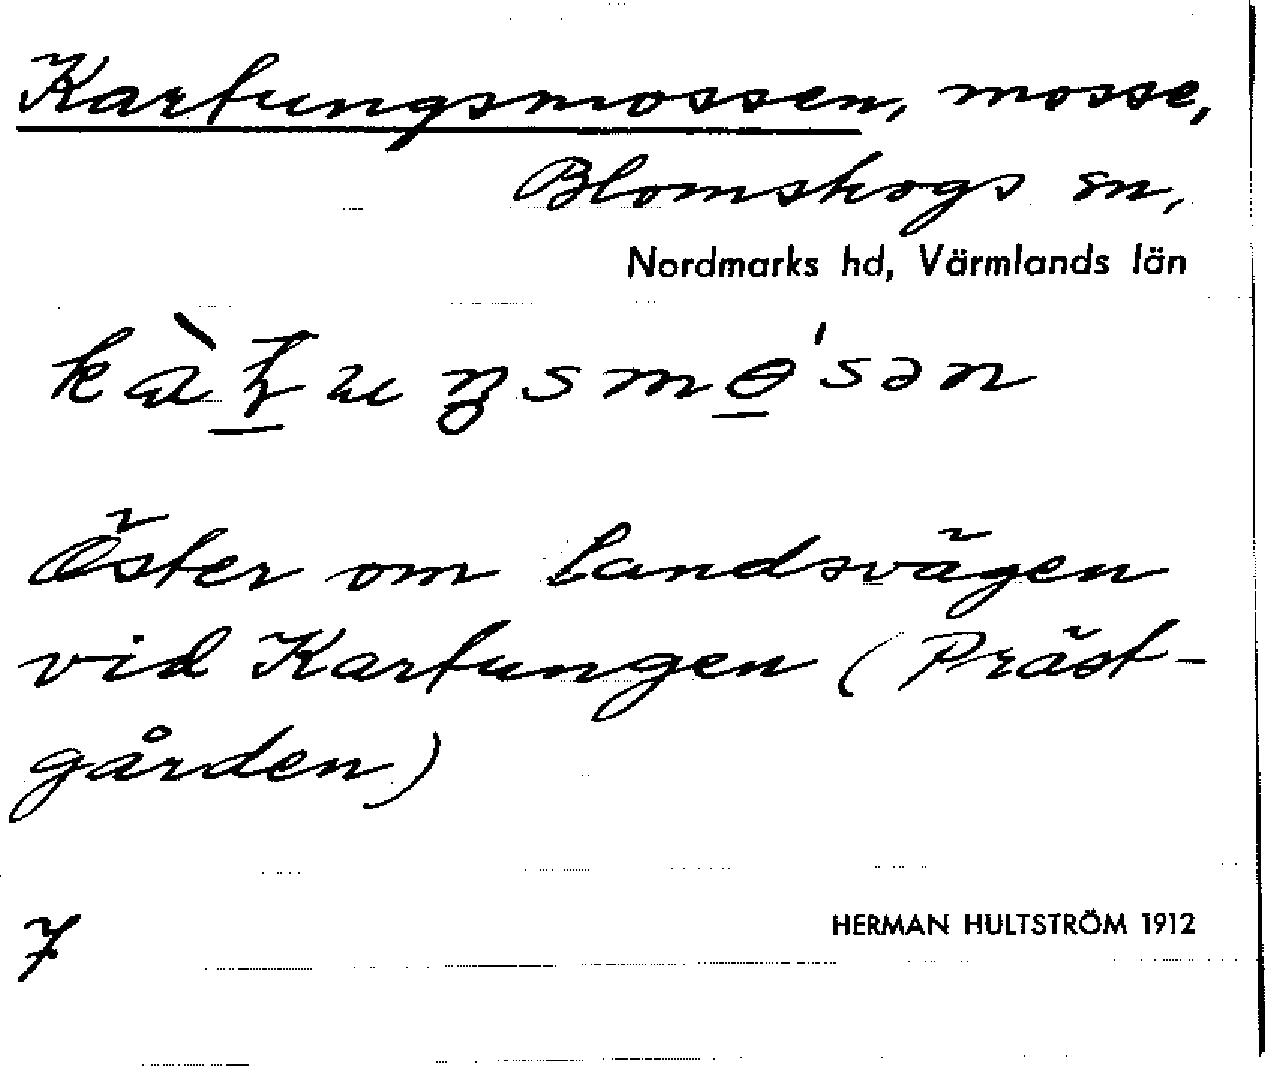 Kartungsmossen, mosse,
Blomskogs sn,
Nordmarks hd, Värmlands län
Öster om landsvägen
vid Kartungen (Präst-
gården)
HERMAN HULTSTRÖM 1912
7